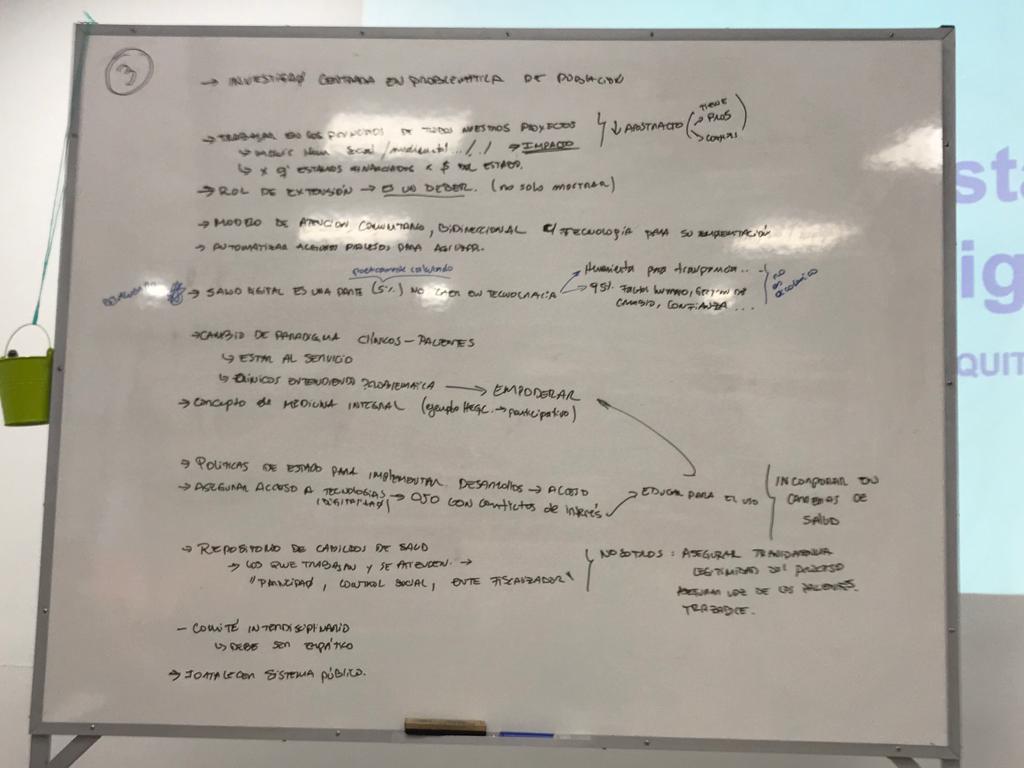 3
→ INVESTIGAÓ CENTRADA EN PROBLEMÁTICA DE POBLACIÓN
→ TRABAJAR EN LOS DE TODOS NUESTROS PROYECTOS ↓ ABSTRACTO ( TIENE → PROS → CONTRAS )
social / / → IMPACTO
↳ x q' ESTAMOS FINANCIADOS x $ DEL ESTADO.
→ ROL DE EXTENSIÓN → ES UN DEBER. (no solo mostrar)
→ MODELO DE ATENCIÓN COMUNITARIO, BIDIRECCIONAL C/ TECNOLOGÍA PARA SU IMPLEMENTACIÓN
→ AUTOMATIZAR ALGUNOS PROCESOS PARA AGILIZAR.
calculado
→ SALUD DIGITAL ES UNA PARTE (5%) NO CAER EN TECNOCRACIA
Herramienta para transparencia.. NO ES ECONÓMICO
→ 95% FACTOR HUMANO, GESTIÓN DE
CAMBIO, CONFIANZA ...
→ CAMBIO DE PARADIGMA CLÍNICOS - PACIENTES
↳ ESTAR AL SERVICIO
↳ CLÍNICOS ENTENDIENDO PROBLEMÁTICA → EMPODERAR
→ Concepto de MEDICINA INTEGRAL (ejemplo HEGC. → participativo)
→ POLÍTICAS DE ESTADO PARA IMPLEMENTAR DESARROLLOS → ACCESO
→ ASEGURAR ACCESO A TECNOLOGÍAS → OJO CON conflictos de interés → EDUCAR PARA EL USO
(DIGITALIDAD)
INCORPORAR EN
CARRERAS DE
SALUD
→ REPOSITORIO DE CABILDOS DE SALUD
→ LOS QUE TRABAJAN Y SE ATIENDEN. →
" PRIVACIDAD, CONTROL SOCIAL, ENTE FISCALIZADOR "
NOSOTROS : ASEGURAR TRANSPARENCIA
LEGITIMIDAD DEL PROCESO
ASEGURAR VOZ DE LOS PACIENTES.
- COMITÉ INTERDISCIPLINARIO
↳ DEBE SER EMPÁTICO
→ FORTALECER SISTEMA PÚBLICO.
sta
ig
QUIT